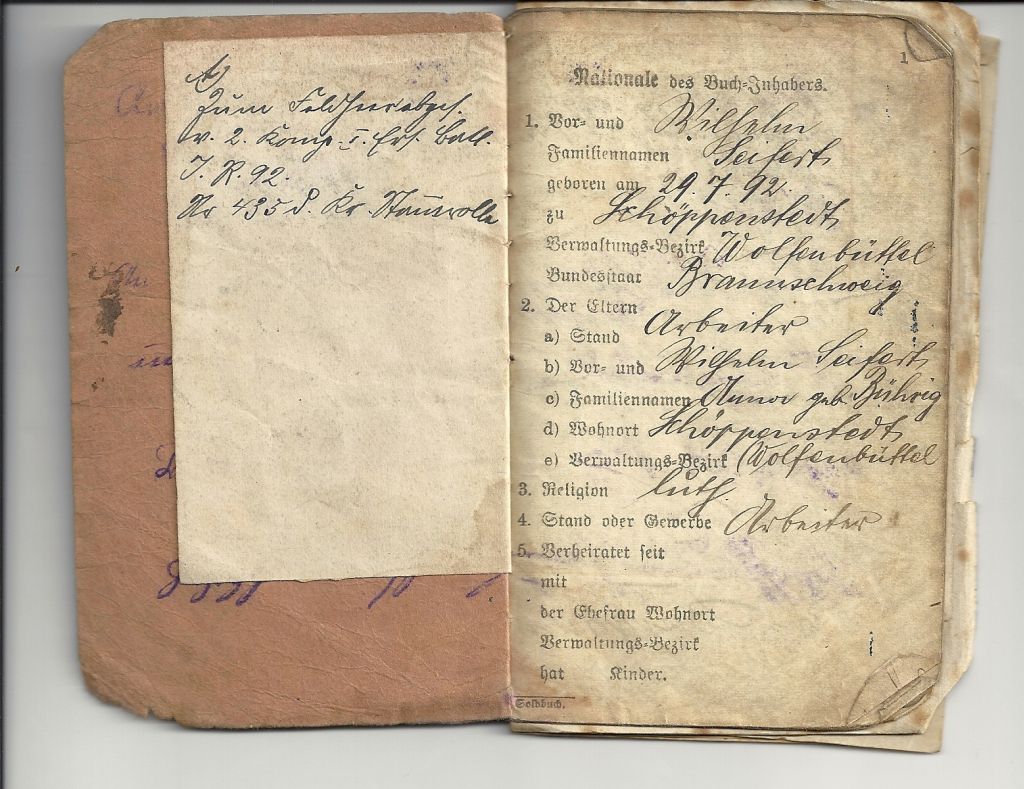 A)
Zum Feldheer abges.
v. 2. Komp. I. Ers. Batl.
I. R. 92.
Nr 435 d. Kr. Stammrolle
1
Nationale des Buch-Inhabers.
1. Vor- und Wilhelm
Familiennamen Seifert
geboren am 29. 7. 92.
zu Schöppenstedt
Verwaltungs-Bezirk Wolfenbüttel
Bundesstaat Braunschweig
2. Der Eltern
a) Stand Arbeiter
b) Vor- und Wilhelm Seifert
c) Familiennamen Anna geb. Bührig
d) Wohnort Schöppenstedt
e) Verwaltungs-Bezirk Wolfenbüttel
3. Religion luth.
4. Stand oder Gewerbe Arbeiter
5. Verheiratet seit
mit
der Ehefrau Wohnort
Verwaltungs-Bezirk
hat Kinder.
Soldbuch.